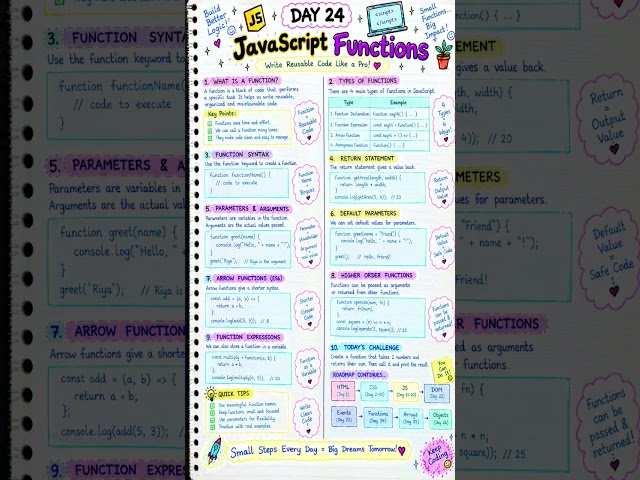 Build Better Logic!
JS
DAY 24
<script>
</script>
Small Functions... Big Impact!
JavaScript Functions
Write Reusable Code Like a Pro!
1. WHAT IS A FUNCTION?
A function is a block of code that performs
a specific task. It helps us write reusable,
organized and maintainable code.
Key Points:
Functions save time and effort.
We can call a function many times.
They make code clean and easy to manage.
Function = Reusable Code
2. TYPES OF FUNCTIONS
There are 4 main types of functions in JavaScript.
Type Example
1. Function Declaration function sayHi() { ... }
2. Function Expression const sayHi = function() { ... }
3. Arrow Function const sayHi = () => { ... }
4. Anonymous Function function() { ... }
4 Types 4 Ways!
3. FUNCTION SYNTAX
Use the function keyword to create a function.
function functionName() {
// code to execute
}
Function Name + Braces
4. RETURN STATEMENT
The return statement gives a value back.
function getArea(length, width) {
return length * width;
}
console.log(getArea(5, 4)); // 20
Return = Output Value
5. PARAMETERS & ARGUMENTS
Parameters are variables in the function.
Arguments are the actual values passed.
function greet(name) {
console.log("Hello, " + name + "!");
}
greet("Riya"); // Riya is the argument
Parameter Placeholder Argument real value
6. DEFAULT PARAMETERS
We can set default values for parameters.
function greet(name = "Friend") {
console.log("Hello, " + name + "!");
}
greet(); // Hello, Friend!
Default Value = Safe Code
7. ARROW FUNCTIONS (ES6)
Arrow functions give a shorter syntax.
const add = (a, b) => {
return a + b;
}
console.log(add(5, 3)); // 8
Shorter & Cleaner Code
8. HIGHER ORDER FUNCTIONS
Functions can be passed as arguments
or returned from other functions.
function operate(num, fn) {
return fn(num);
}
const square = (n) => n * n;
console.log(operate(5, square)); // 25
Functions can be passed & returned!
9. FUNCTION EXPRESSIONS
We can also store a function in a variable.
const multiply = function(a, b) {
return a * b;
}
console.log(multiply(4, 5)); // 20
Function as a Variable
10. TODAY'S CHALLENGE
Create a function that takes 2 numbers and
returns their sum. Then call it and print the result.
You Can Do It!
ROADMAP CONTINUES...
HTML CSS JS DOM
QUICK TIPS
Use meaningful function names.
Keep functions small and focused.
Use parameters for flexibility.
Practice with real examples.
Write Clean Code
Events Functions Arrays Objects
(Day 24)
Small Steps Every Day = Big Dreams Tomorrow!
Keep Coding